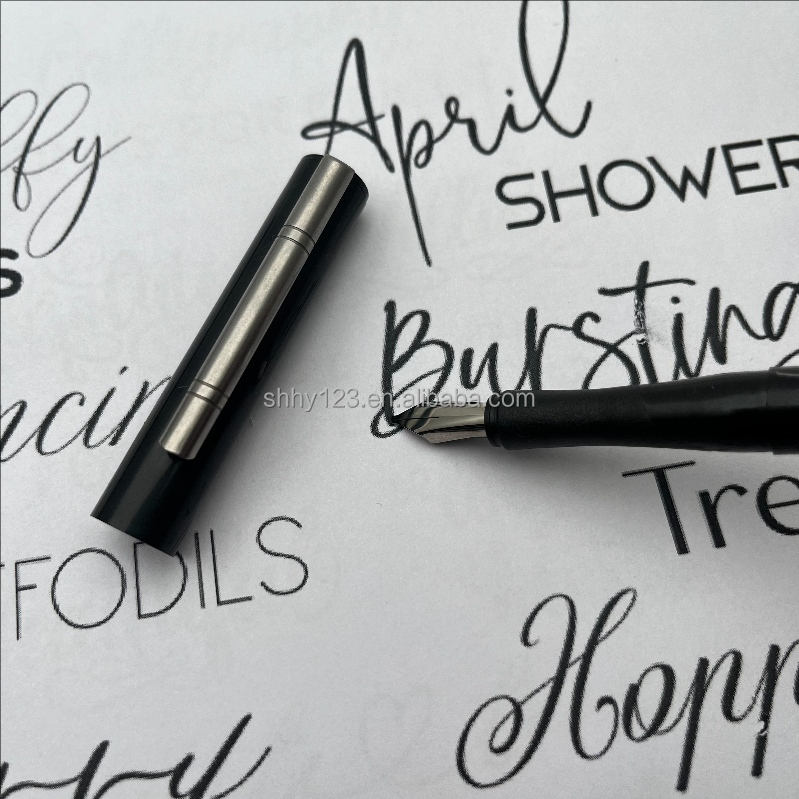 April
ffy
SHOWER
s
Bursting
ncin
shhy123.en.alibaba.com
Tre
FFODILS
Happ